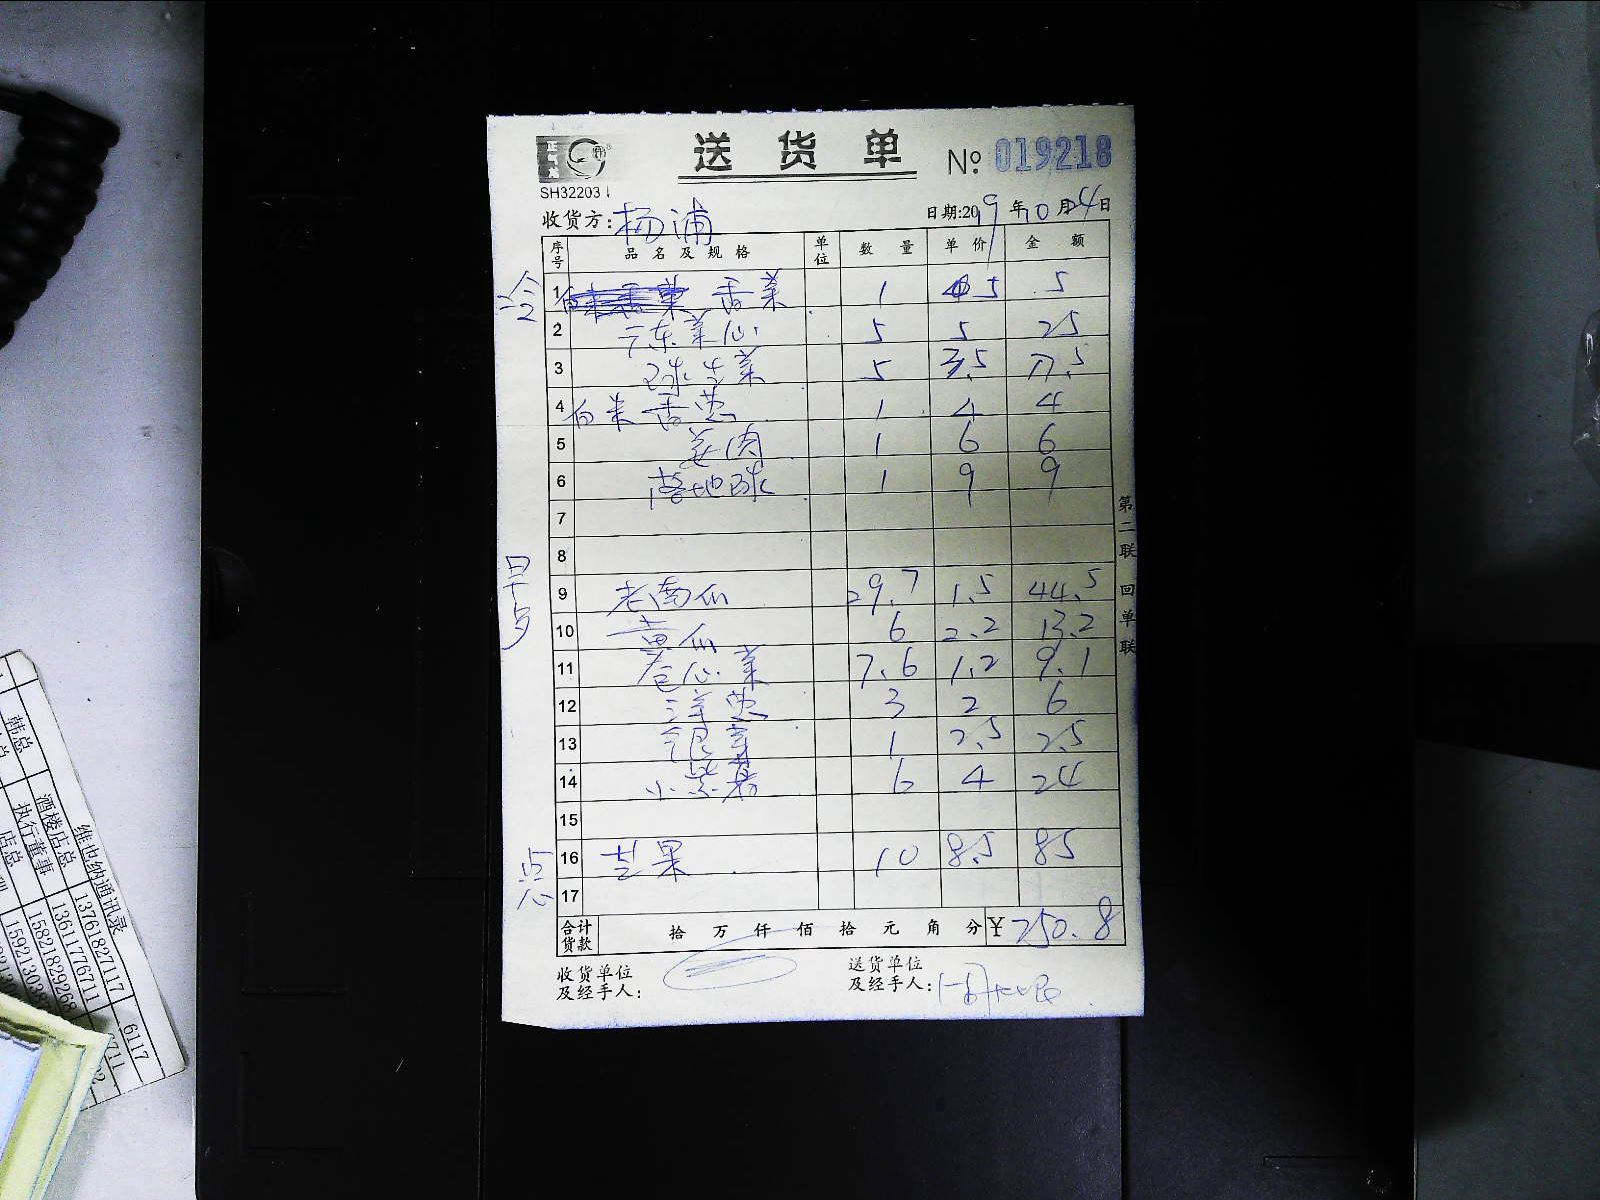 送 货 单 № 019218
SH32203
收货方: 杨浦 日期:2019年10月24日
序号 品名及规格 单位 数量 单价 金额
冷
1 香菜 1 5 5
2 广东菜心 5 5 25
3 球生菜 5 3.5 17.5
4 白米香葱 1 4 4
5 姜肉 1 6 6
6 落地球 1 9 9
7
8
早点
9 老南瓜 29.7 1.5 44.5
10 黄瓜 6 2.2 13.2
11 卷心菜 7.6 1.2 9.1
12 洋葱 3 2 6
13 银芽 1 2.5 2.5
14 小紫薯 6 4 24
15
点心
16 芒果 10 8.5 85
17
合计货款 拾 万 仟 佰 拾 元 角 分 ¥250.8
收货单位及经手人:
送货单位及经手人:
第二联 回单联
韩总
酒楼店总
执行董事
店总
维也纳通讯录
13761827117 6117
13611776711 6711
15821829268